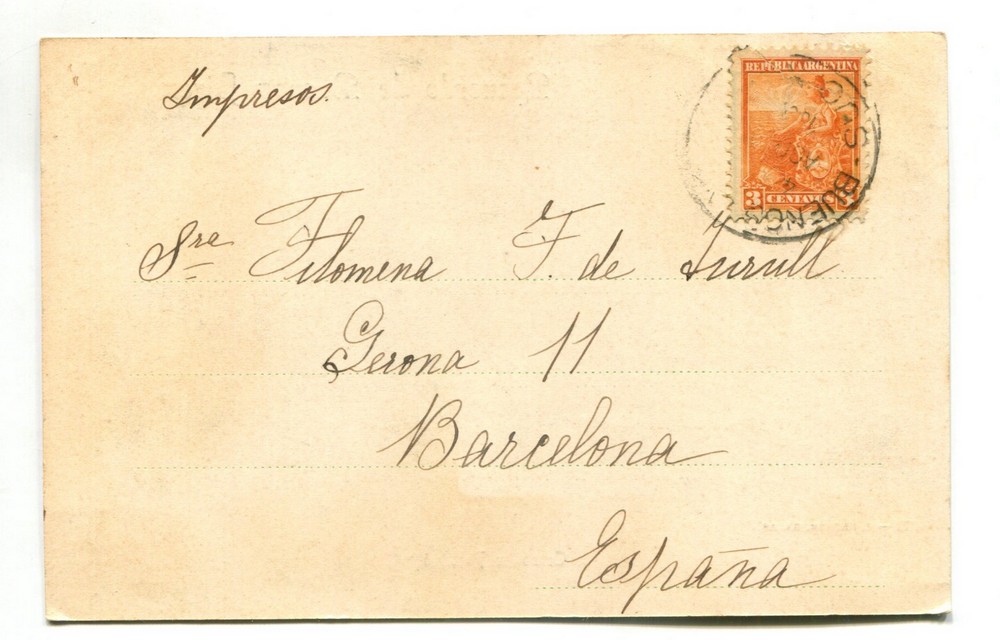 Impresos.
REPÚBLICA ARGENTINA
3 CENTAVOS
BUENOS
Sra Filomena F. de Surull
Gerona 11
Barcelona
España